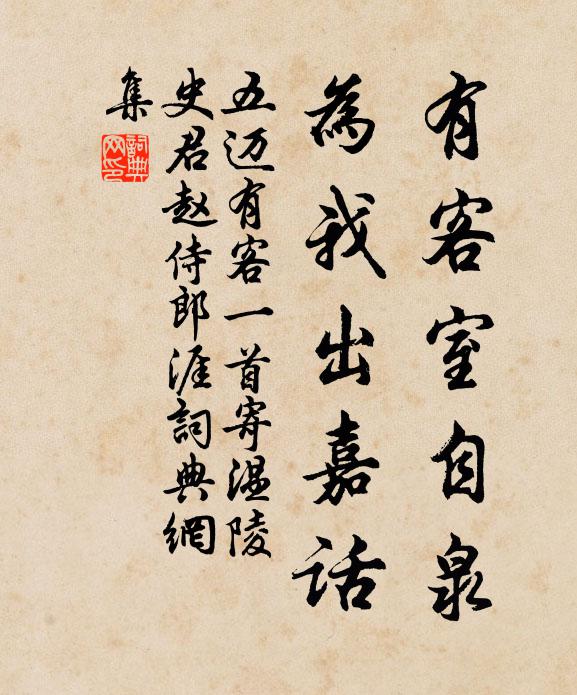 有客室自泉
為我出嘉話
五迈有客一首寄温陵
史君赵侍郎涯詞典網
集
詞典
网印